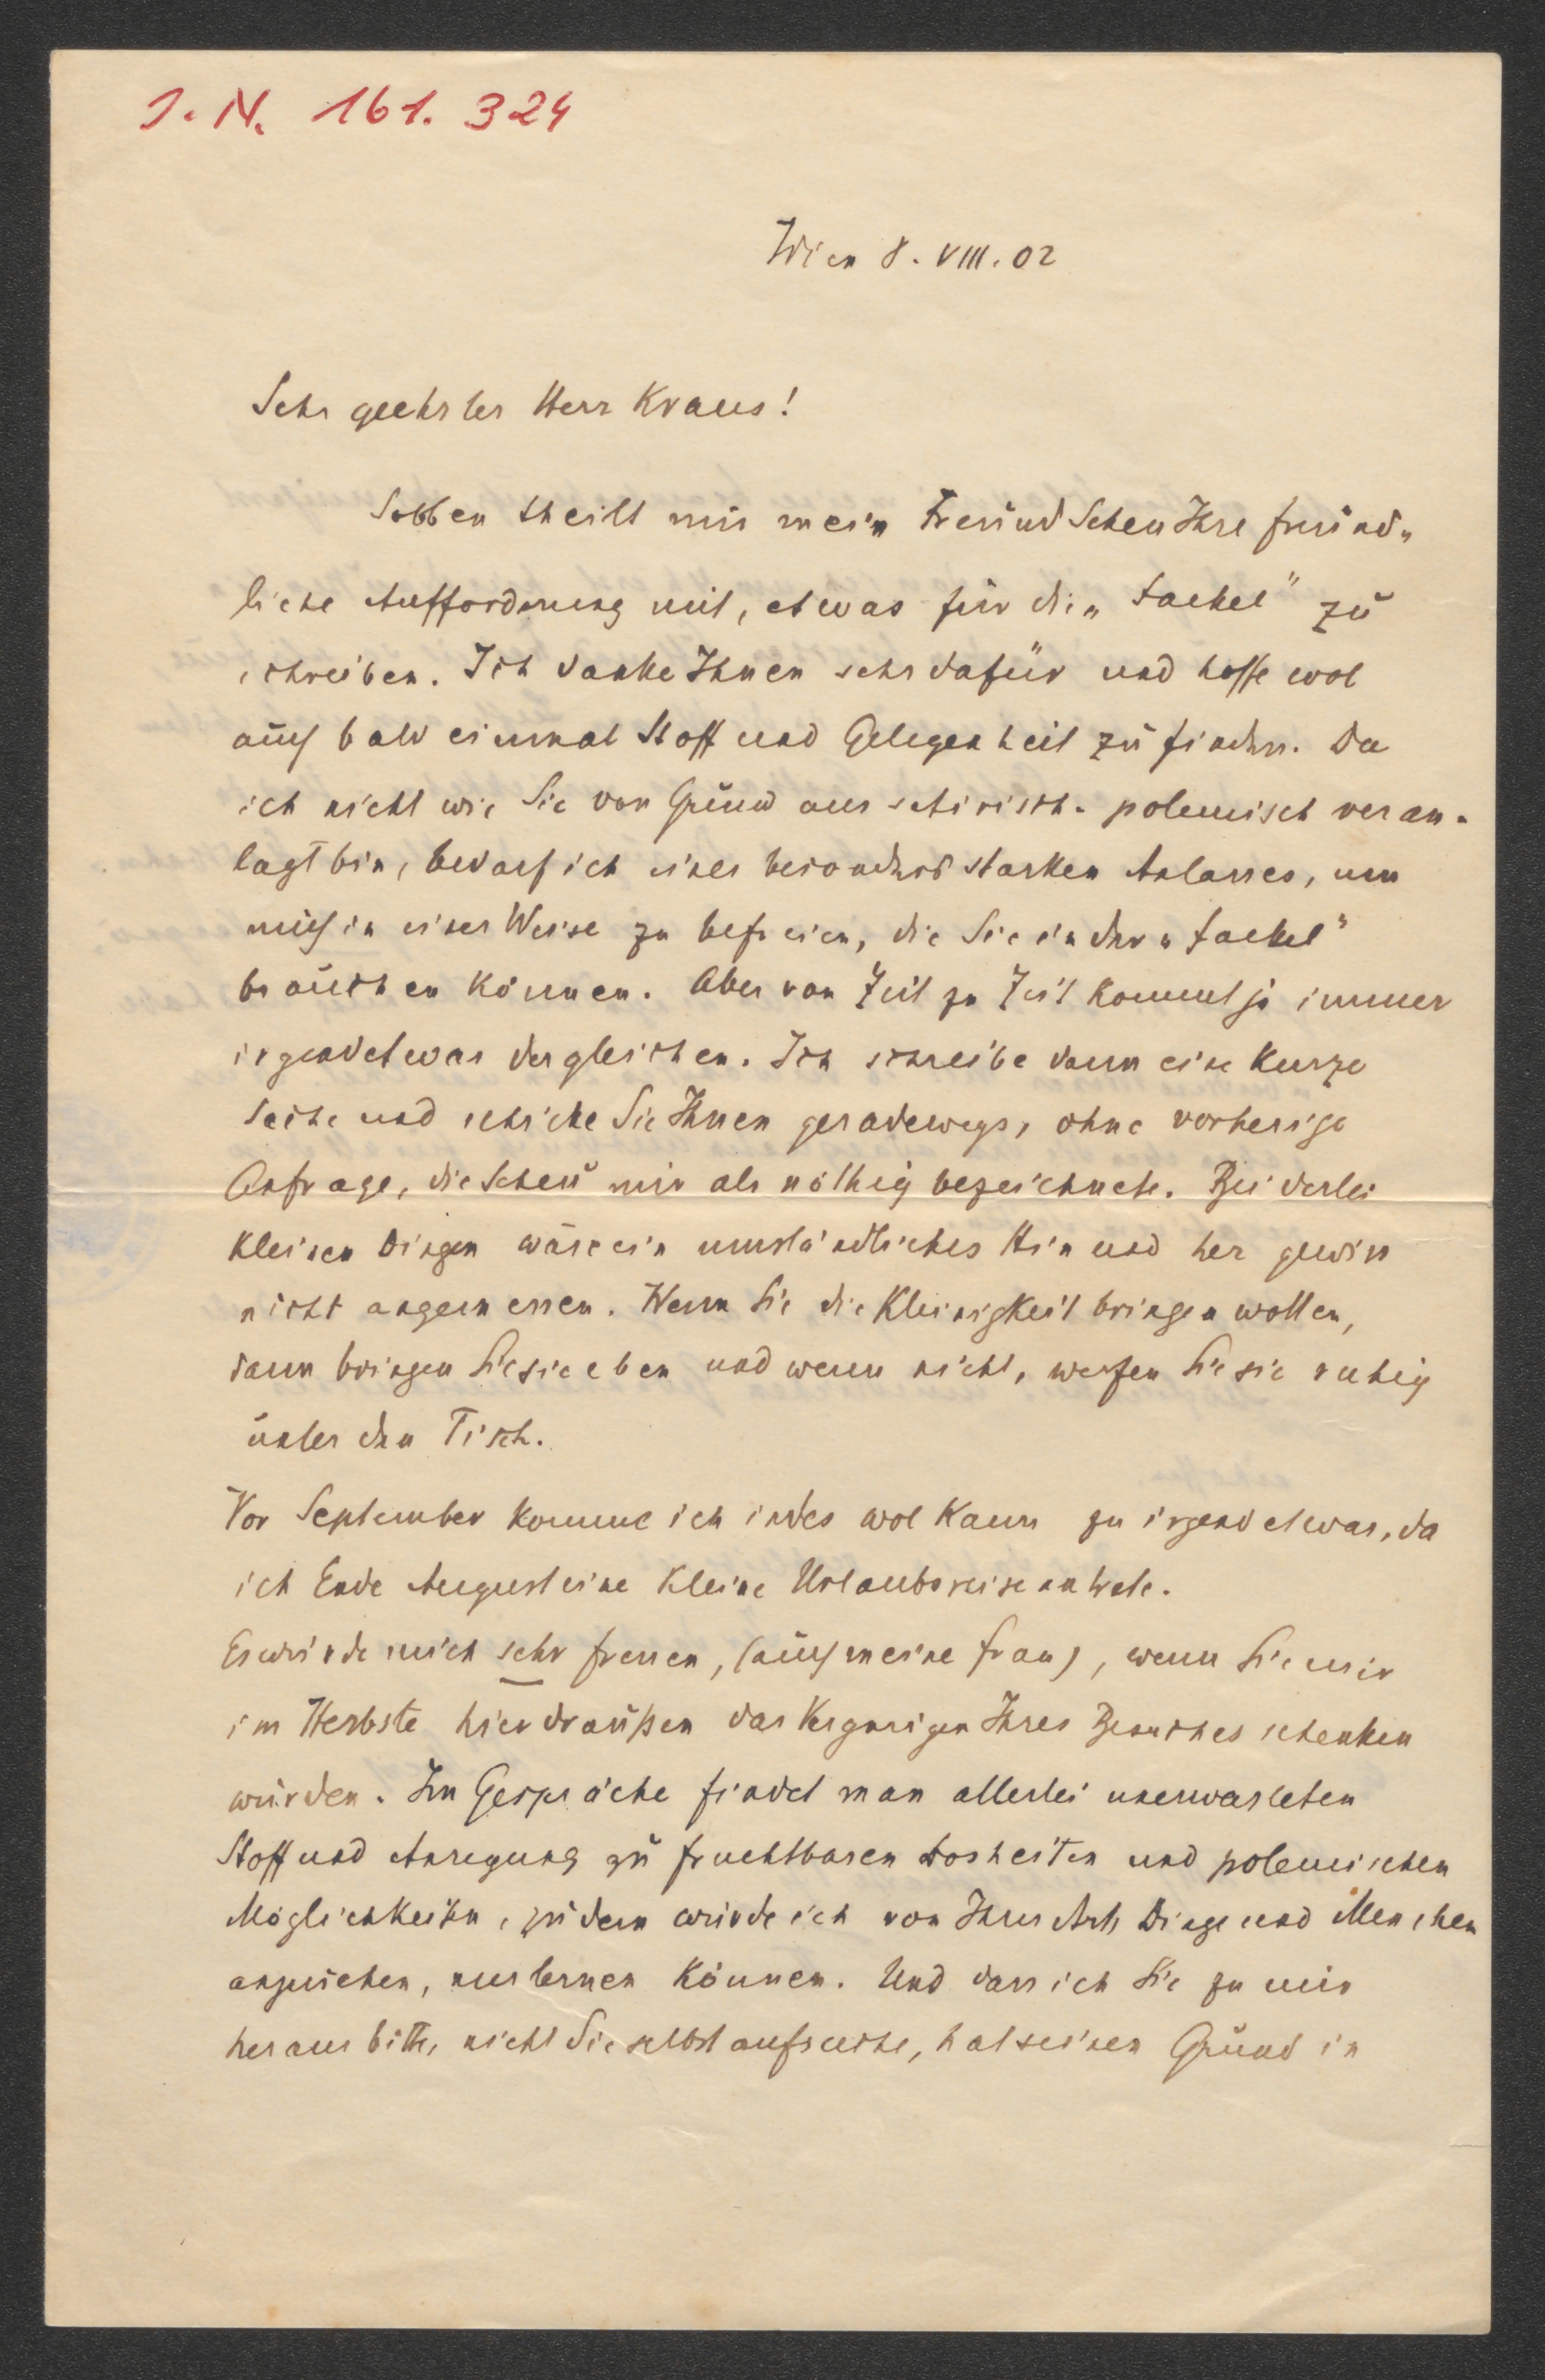 J. N. 161. 324
Wien 8. VIII. 02
Sehr geehrter Herr Kraus!
Soeben theilt mir mein Freund Scheu Ihre freund„
liche Aufforderung mit, etwas für die „Fackel" zu
schreiben. Ich danke Ihnen sehr dafür und hoffe wol
auch bald einmal Stoff und Gelegenheit zu finden. Da
ich nicht wie Sie von Grund aus satirisch-polemisch veran-
lagt bin, bedarf ich eines besonders starken Anlasses, um
mich in einer Weise zu befreien, die Sie in der „Fackel"
brauchen können. Aber von Zeit zu Zeit kommt ja immer
irgendetwas dergleichen. Ich schreibe dann eine kurze
Sache und schicke Sie Ihnen geradewegs, ohne vorherige
Anfrage, die Scheu mir als nöthig bezeichnete. Bei derlei
kleinen Dingen wäre ein umständliches Hin und her gewiss
nicht angemessen. Wenn Sie die Kleinigkeit bringen wollen,
dann bringen Sie sie eben und wenn nicht, werfen Sie sie ruhig
unter den Tisch.
Vor September komme ich indes wol kaum zu irgend etwas, da
ich Ende August eine kleine Urlaubsreise antrete.
Es würde mich sehr freuen, (auch meine Frau), wenn Sie mir
im Herbste hier draußen das Vergnügen Ihres Besuches schenken
würden. Im Gespräche findet man allerlei unerwarteten
Stoff und Anregung zu fruchtbaren Bosheiten und polemischen
Möglichkeiten, zudem würde ich von Ihrer Art, Dinge und Menschen
anzusehen, nur lernen können. Und dass ich Sie zu mir
heraus bitte, nicht Sie selbst aufsuche, hat seinen Grund in